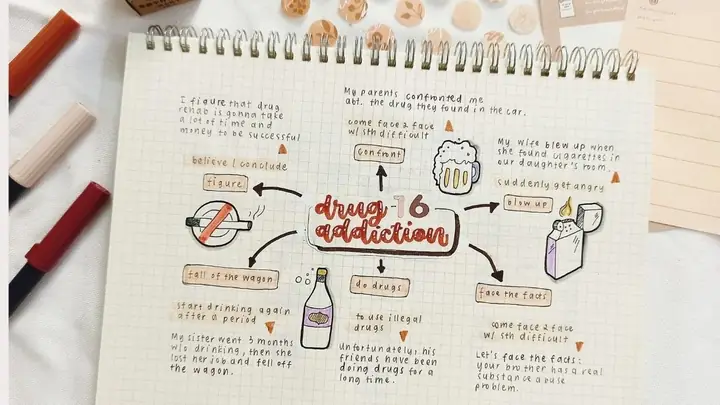 I figure that drug
rehab is gonna take
a lot of time and
money to be successful
believe / conclude
figure
My parents confronted me
abt. the drug they found in the car.
come face 2 face
w/ sth difficult
confront
My wife blew up when
she found cigarettes in
our daughter's room.
suddenly get angry
blow up
drug 16
addiction
fall of the wagon
start drinking again
after a period
My sister went 3 months
w/o drinking, then she
lost her job and fell off
the wagon.
do drugs
to use illegal
drugs
Unfortunately, his
friends have been
doing drugs for a
long time.
face the facts
come face 2 face
w/ sth difficult
Let's face the facts:
your brother has a real
substance abuse
problem.